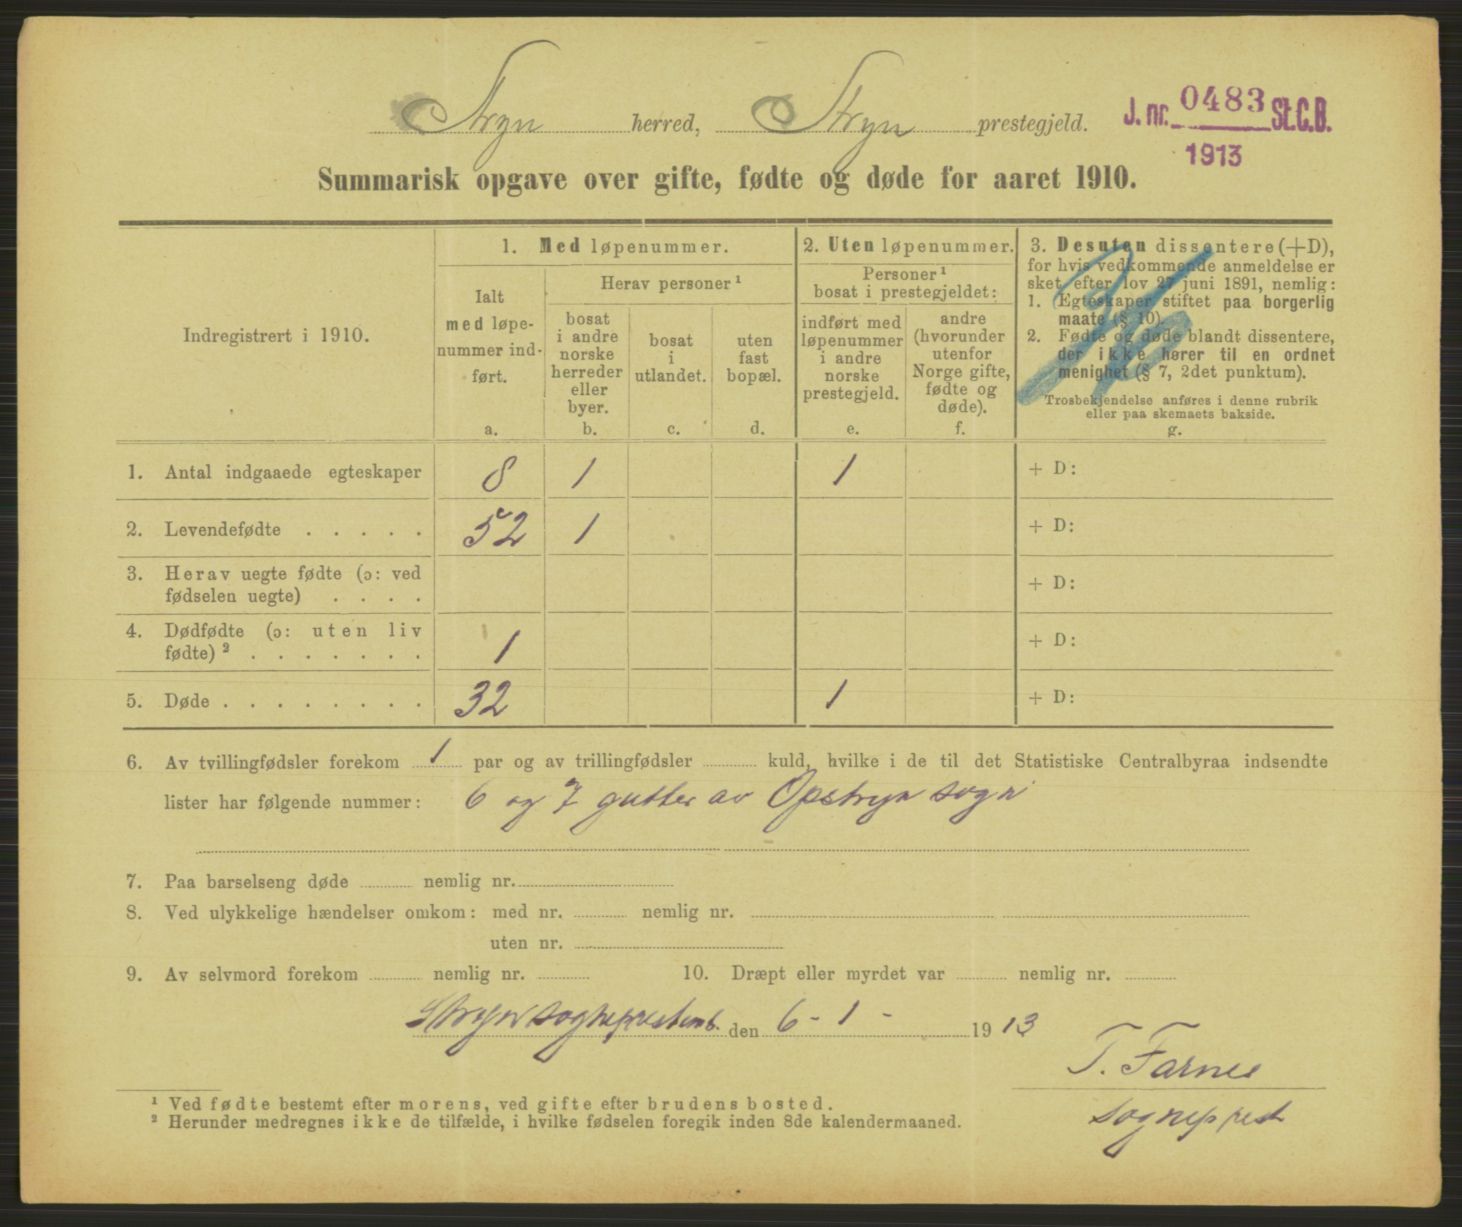 Stryn herred, Stryn prestegjeld.
J. nr. 0483 St.C.B.
1913
Summarisk opgave over gifte, fødte og døde for aaret 1910.
Indregistrert i 1910.
1. Med løpenummer.
Ialt
med løpe-
nummer ind-
ført.
a.
Herav personer ¹
bosat
i andre
norske
herreder
eller
byer.
b.
bosat
i
utlandet.
c.
uten
fast
bopæl.
d.
2. Uten løpenummer.
Personer ¹
bosat i prestegjeldet:
indført med
løpenummer
i andre
norske
prestegjeld.
e.
andre
(hvorunder
utenfor
Norge gifte,
fødte og
døde).
f.
3. Desuten dissentere (+D),
for hvis vedkommende anmeldelse er
sket efter lov 27 juni 1891, nemlig:
1. Egteskaper stiftet paa borgerlig
maate (§ 10).
2. Fødte og døde blandt dissentere,
der ikke hører til en ordnet
menighet (§ 7, 2det punktum).
Trosbekjendelse anføres i denne rubrik
eller paa skemaets bakside.
g.
1. Antal indgaaede egteskaper 8 1 1 + D:
2. Levendefødte . . . . . 52 1 + D:
3. Herav uegte fødte (ɔ: ved
fødselen uegte) . . . . + D:
4. Dødfødte (ɔ: uten liv
fødte) ² . . . . . . . 1 + D:
5. Døde . . . . . . . . 32 1 + D:
6. Av tvillingfødsler forekom 1 par og av trillingfødsler kuld, hvilke i de til det Statistiske Centralbyraa indsendte
lister har følgende nummer: 6 og 7 gutter av Opstryn sogn
7. Paa barselseng døde nemlig nr.
8. Ved ulykkelige hændelser omkom: med nr. nemlig nr.
uten nr.
9. Av selvmord forekom nemlig nr. 10. Dræpt eller myrdet var nemlig nr.
Stryn sogneprestemb. den 6-1- 1913
T. Farnes
sogneprest
¹ Ved fødte bestemt efter morens, ved gifte efter brudens bosted.
² Herunder medregnes ikke de tilfælde, i hvilke fødselen foregik inden 8de kalendermaaned.